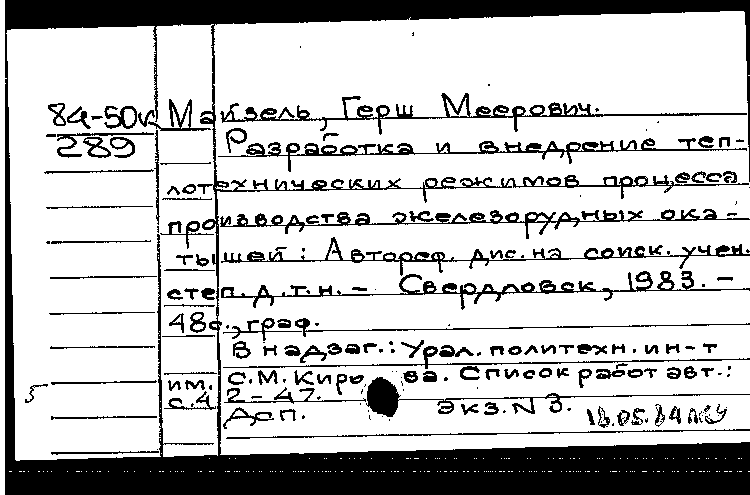 84-50к Майзель, Герш Меерович.
289 Разработка и внедрение теп-
лотехнических режимов процесса
производства железорудных ока-
тышей: Автореф. дис. на соиск. учен.
степ. д.т.н. - Свердловск, 1983. -
48с., граф.
В надзаг.: Урал. политехн. ин-т
им. С.М. Кирова. Список работ авт.:
с.42-47.
Дсп. Экз. N 3. 18.05.84